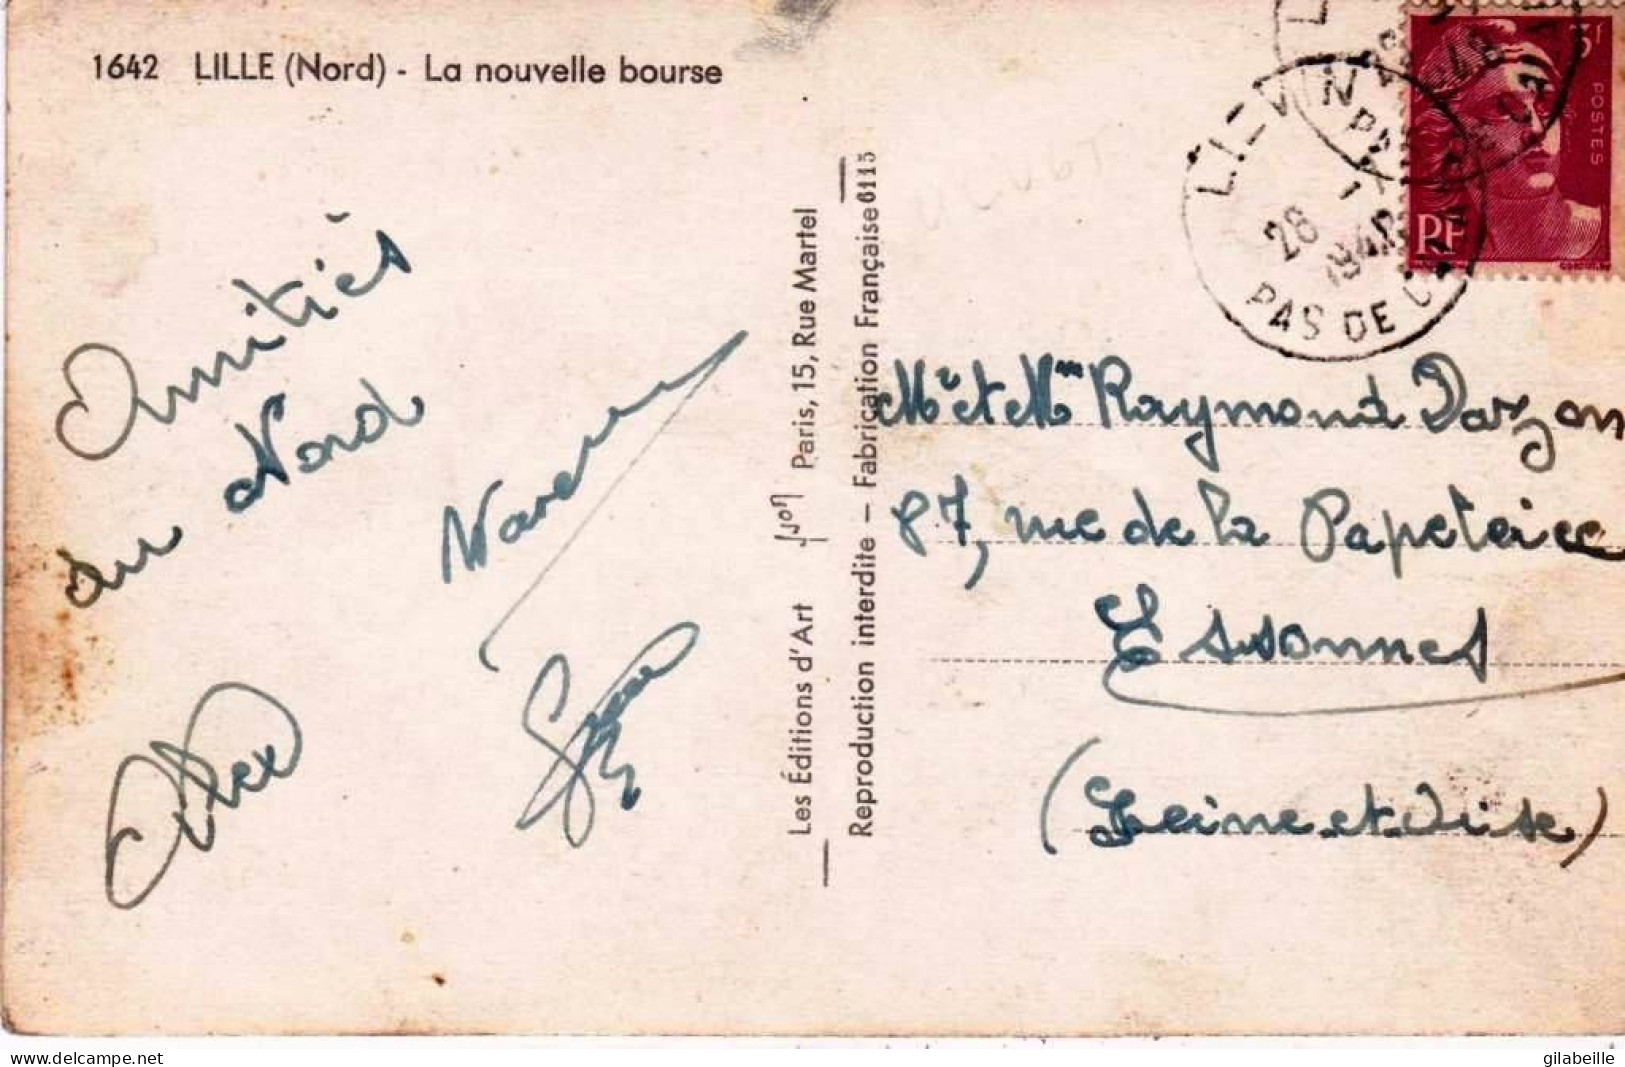 1642 LILLE (Nord) - La nouvelle bourse
Amitiés
du Nord
Les Éditions d'Art Yvon Paris, 15, Rue Martel
Reproduction interdite - Fabrication Française 6115
LIEVIN
26 -1
1948
PAS DE CAL
3f
POSTES
RF
Mr et Mme Raymond Darzon
87, rue de la Papeterie
Essonnes
(Seine-et-Oise)
delcampe.net
gilabeille